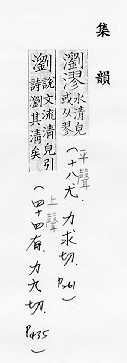 集韻
瀏漻水清皃或从翏(平聲十八尤.力求切.P261)
瀏說文流清皃引詩瀏其清矣(上聲四十四有.力九切.P435)